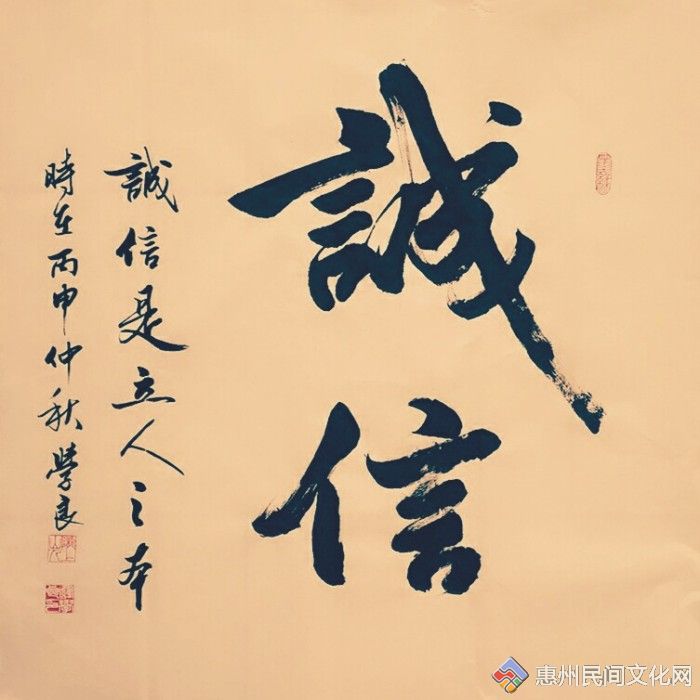 誠信
誠信是立人之本
時在丙申仲秋學良
惠州民间文化网